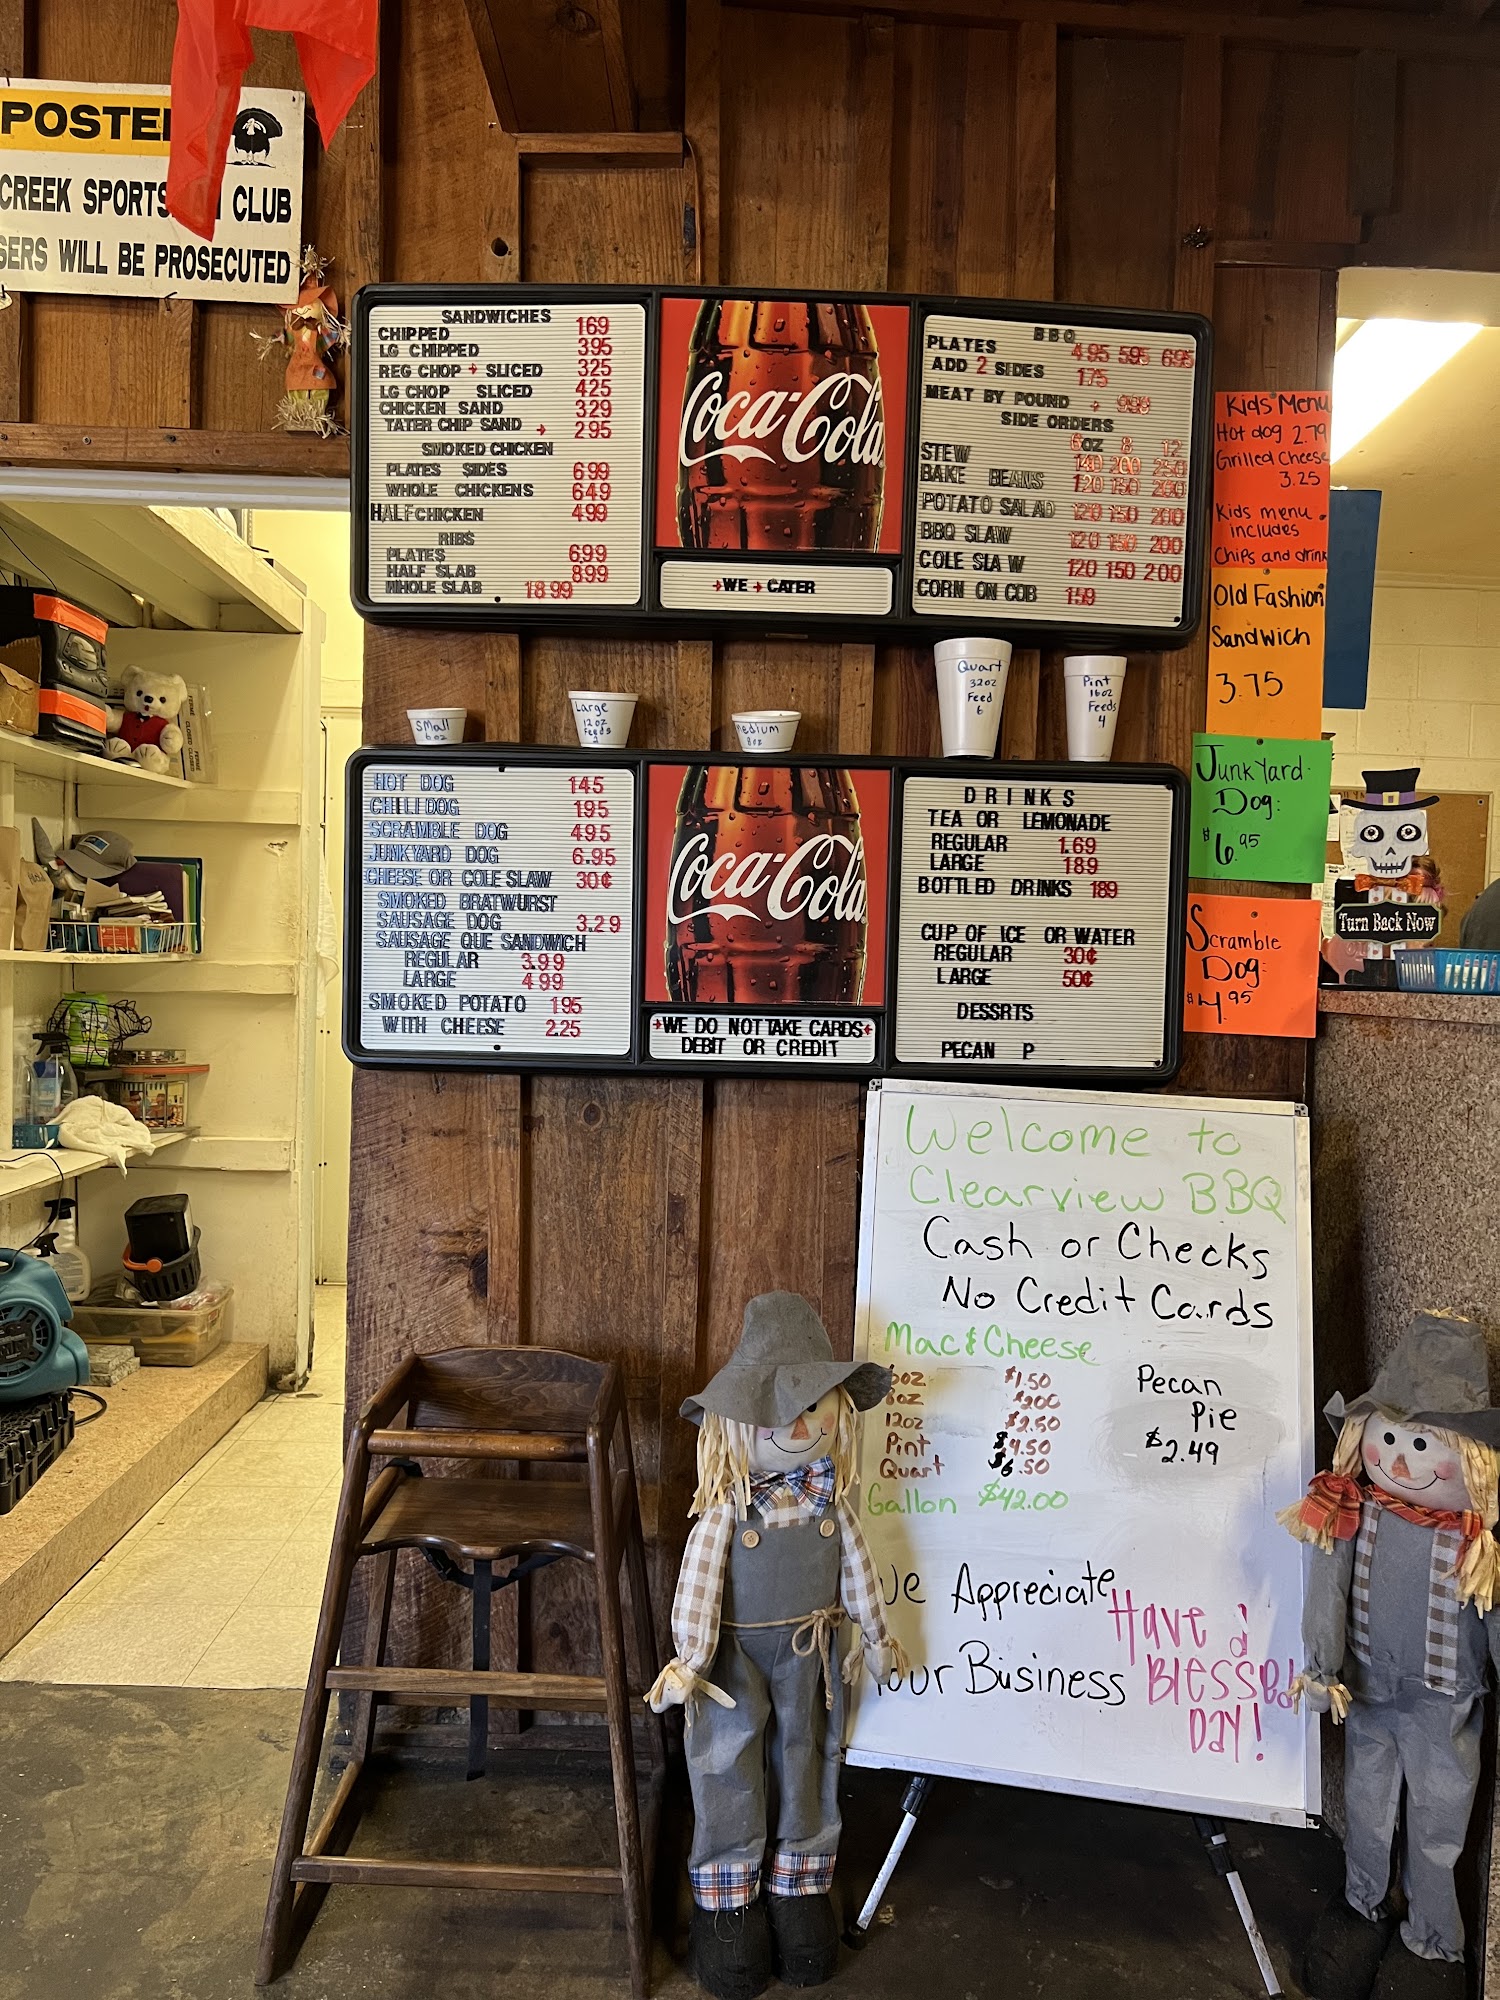 POSTE
CREEK SPORTS CLUB
SERS WILL BE PROSECUTED
SANDWICHES
CHIPPED 169
LG CHIPPED 395
REG CHOP → SLICED 325
LG CHOP SLICED 425
CHICKEN SAND 329
TATER CHIP SAND → 295
SMOKED CHICKEN
PLATES SIDES 699
WHOLE CHICKENS 649
HALF CHICKEN 499
RIBS
PLATES 699
HALF SLAB 899
WHOLE SLAB 1899
Coca-Cola
→WE → CATER
BBQ
PLATES 495 595 695
ADD 2 SIDES 175
MEAT BY POUND →
SIDE ORDERS
6OZ 8 12
STEW 140 200 250
BAKE BEANS 120 150 200
POTATO SALAD 120 150 200
BBQ SLAW 120 150 200
COLE SLAW 120 150 200
CORN ON COB 159
Kids Menu
Hot dog 2.79
Grilled Cheese
3.25
Kids menu
includes
Chips and drink
Old Fashion
Sandwich
3.75
Junk Yard
Dog:
$6.95
Scramble
Dog:
$4.95
Turn Back Now
Small
6oz
Large
12oz
Feeds
2
medium
8oz
Quart
32oz
Feed
6
Pint
16oz
Feeds
4
HOT DOG 145
CHILLI DOG 195
SCRAMBLE DOG 495
JUNKYARD DOG 6.95
CHEESE OR COLE SLAW 30¢
SMOKED BRATWURST
SAUSAGE DOG 3.29
SAUSAGE QUE SANDWICH
REGULAR 3.99
LARGE 499
SMOKED POTATO 195
WITH CHEESE 2.25
Coca-Cola
→WE DO NOT TAKE CARDS←
DEBIT OR CREDIT
DRINKS
TEA OR LEMONADE
REGULAR 1.69
LARGE 189
BOTTLED DRINKS 189
CUP OF ICE OR WATER
REGULAR 30¢
LARGE 50¢
DESSRTS
PECAN P
Welcome to
Clearview BBQ
Cash or Checks
No Credit Cards
Mac & Cheese
6oz $1.50
8oz $200
12oz $2.50
Pint $4.50
Quart $6.50
Gallon $42.00
Pecan
Pie
$2.49
We Appreciate
Your Business
Have a
Blessed
Day!